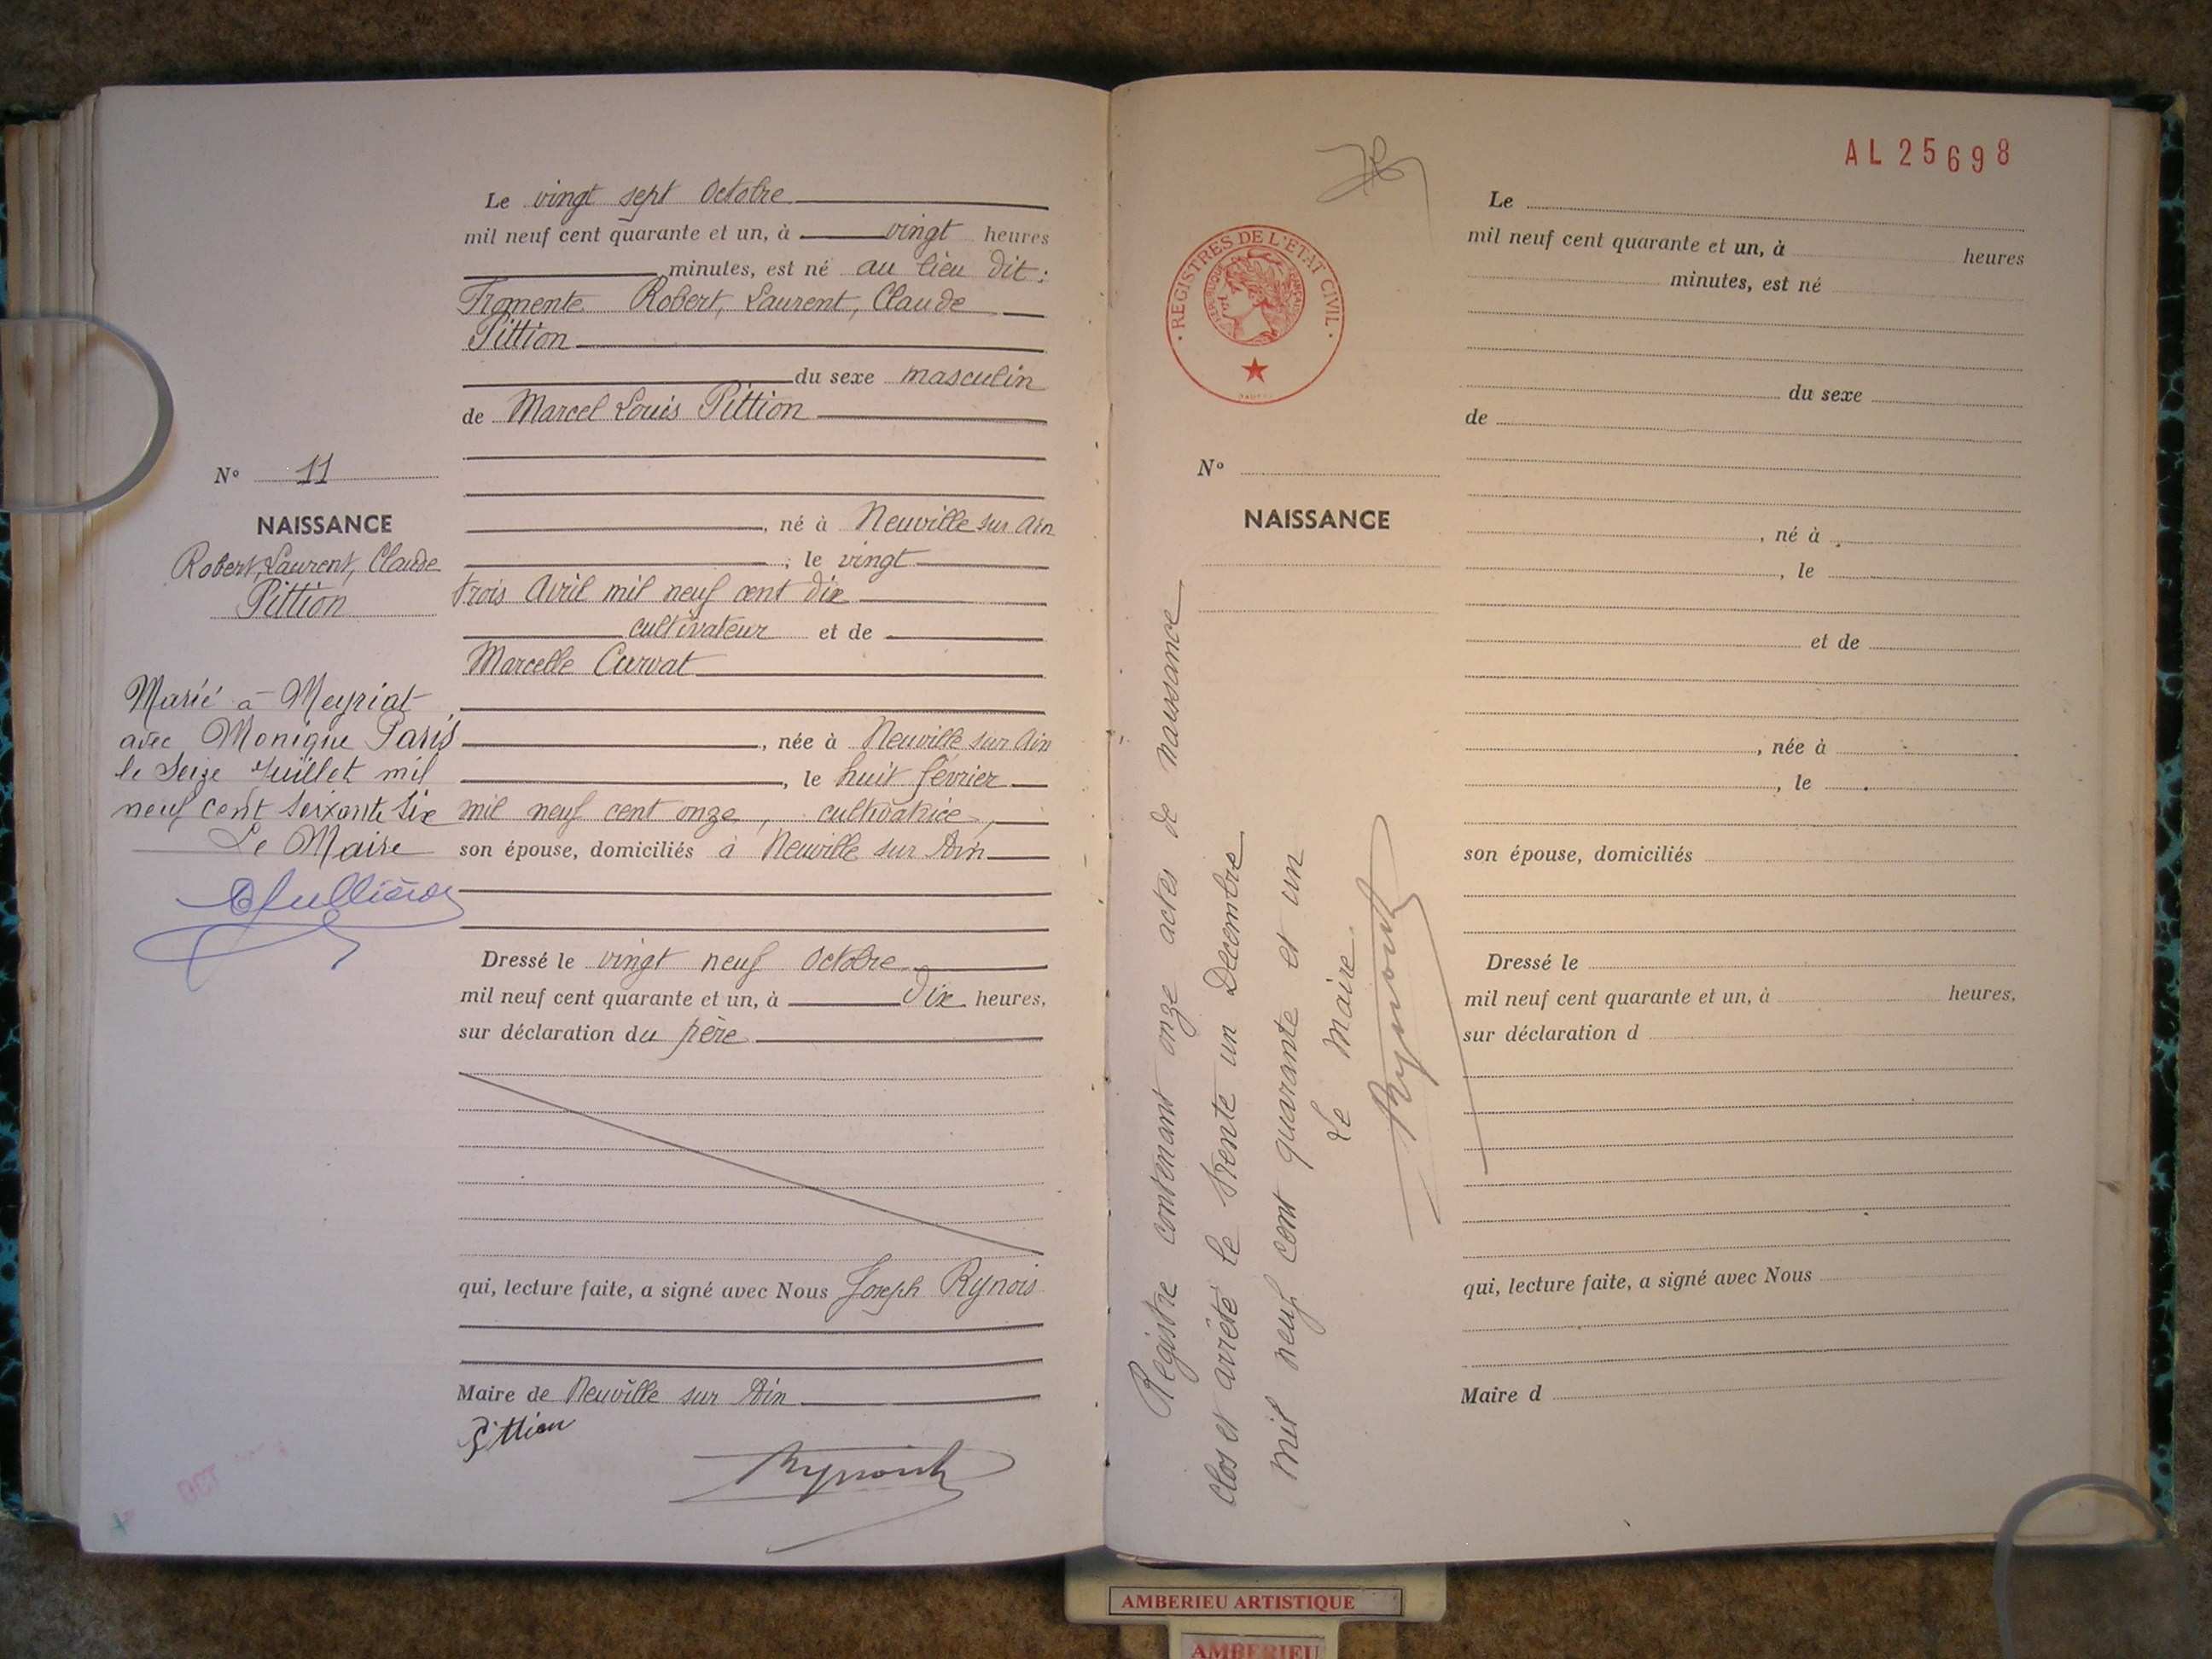 Le vingt sept Octobre
mil neuf cent quarante et un, à vingt heures
minutes, est né au lieu dit :
Fromente Robert, Laurent, Claude
Pittion
du sexe masculin
de Marcel Louis Pittion
, né à Neuville sur Ain
; le vingt
trois Avril mil neuf cent dix
cultivateur et de
Marcelle Curvat
, née à Neuville sur Ain
, le huit février
mil neuf cent onze, cultivatrice,
son épouse, domiciliés à Neuville sur Ain
Dressé le vingt neuf Octobre
mil neuf cent quarante et un, à Dix heures,
sur déclaration du père
qui, lecture faite, a signé avec Nous Joseph Rynois
Maire de Neuville sur Ain
Pittion
N° 11
NAISSANCE
Robert, Laurent, Claude
Pittion
Marié à Meyriat
avec Monique Paris
le Seize Juillet mil
neuf cent soixante six
Le Maire
AL25698
REGISTRES DE L'ETAT CIVIL
N°
NAISSANCE
Registre contenant onze actes de naissance
clos et arrêté le trente un Decembre
mil neuf cent quarante et un
Le Maire.
Le
mil neuf cent quarante et un, à heures
minutes, est né
du sexe
de
, né à
, le
et de
, née à
, le
son épouse, domiciliés
Dressé le
mil neuf cent quarante et un, à heures,
sur déclaration d
qui, lecture faite, a signé avec Nous
Maire d
AMBERIEU ARTISTIQUE
AMBERIEU